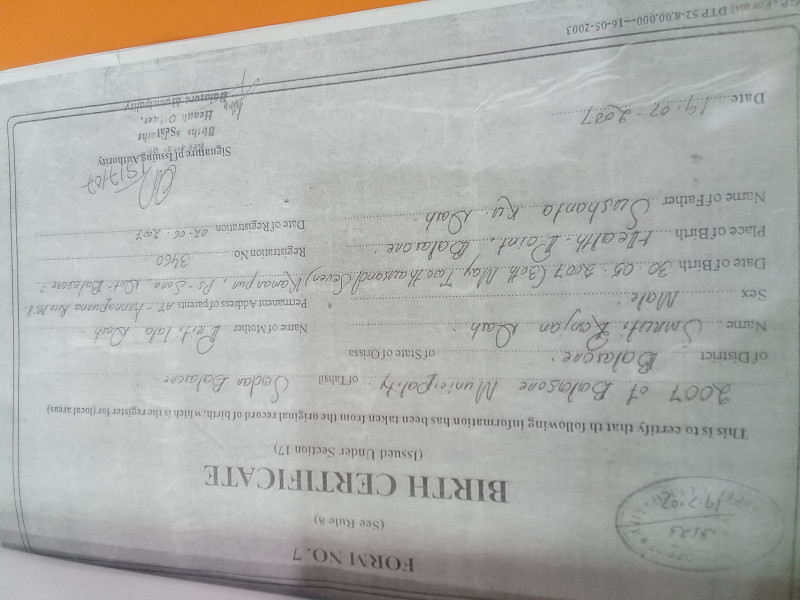 FORM NO. 7
(See Rule 8)
BIRTH CERTIFICATE
(Issued Under Section 17)
This is to certify that following th information has been taken from the original record of birth, which is the register for (local areas)
2007 of Balasore Municipality. of Tahsil Sadar Balasore
of District Balasore. of State of Orissa
Name Smruti Ranjan Dash. Name of Mother Priti lata Dash
Sex Male. Permanent Address of parents AT-
Date of Birth 30.05.2007 (30th May Two thousand Seven) PS-Soro, Dist-Balasore.
Place of Birth Health Point, Balasore. Registration No 3460
Name of Father Sushanta Ku. Dash. Date of Registration 02-06.2007
Signature of Issuing Authority
Births & Deaths
Health Officer,
Balasore Municipality
Date 19.07.2007
DTP 52-8,00,000-16-05-2003
3123
19.7.07